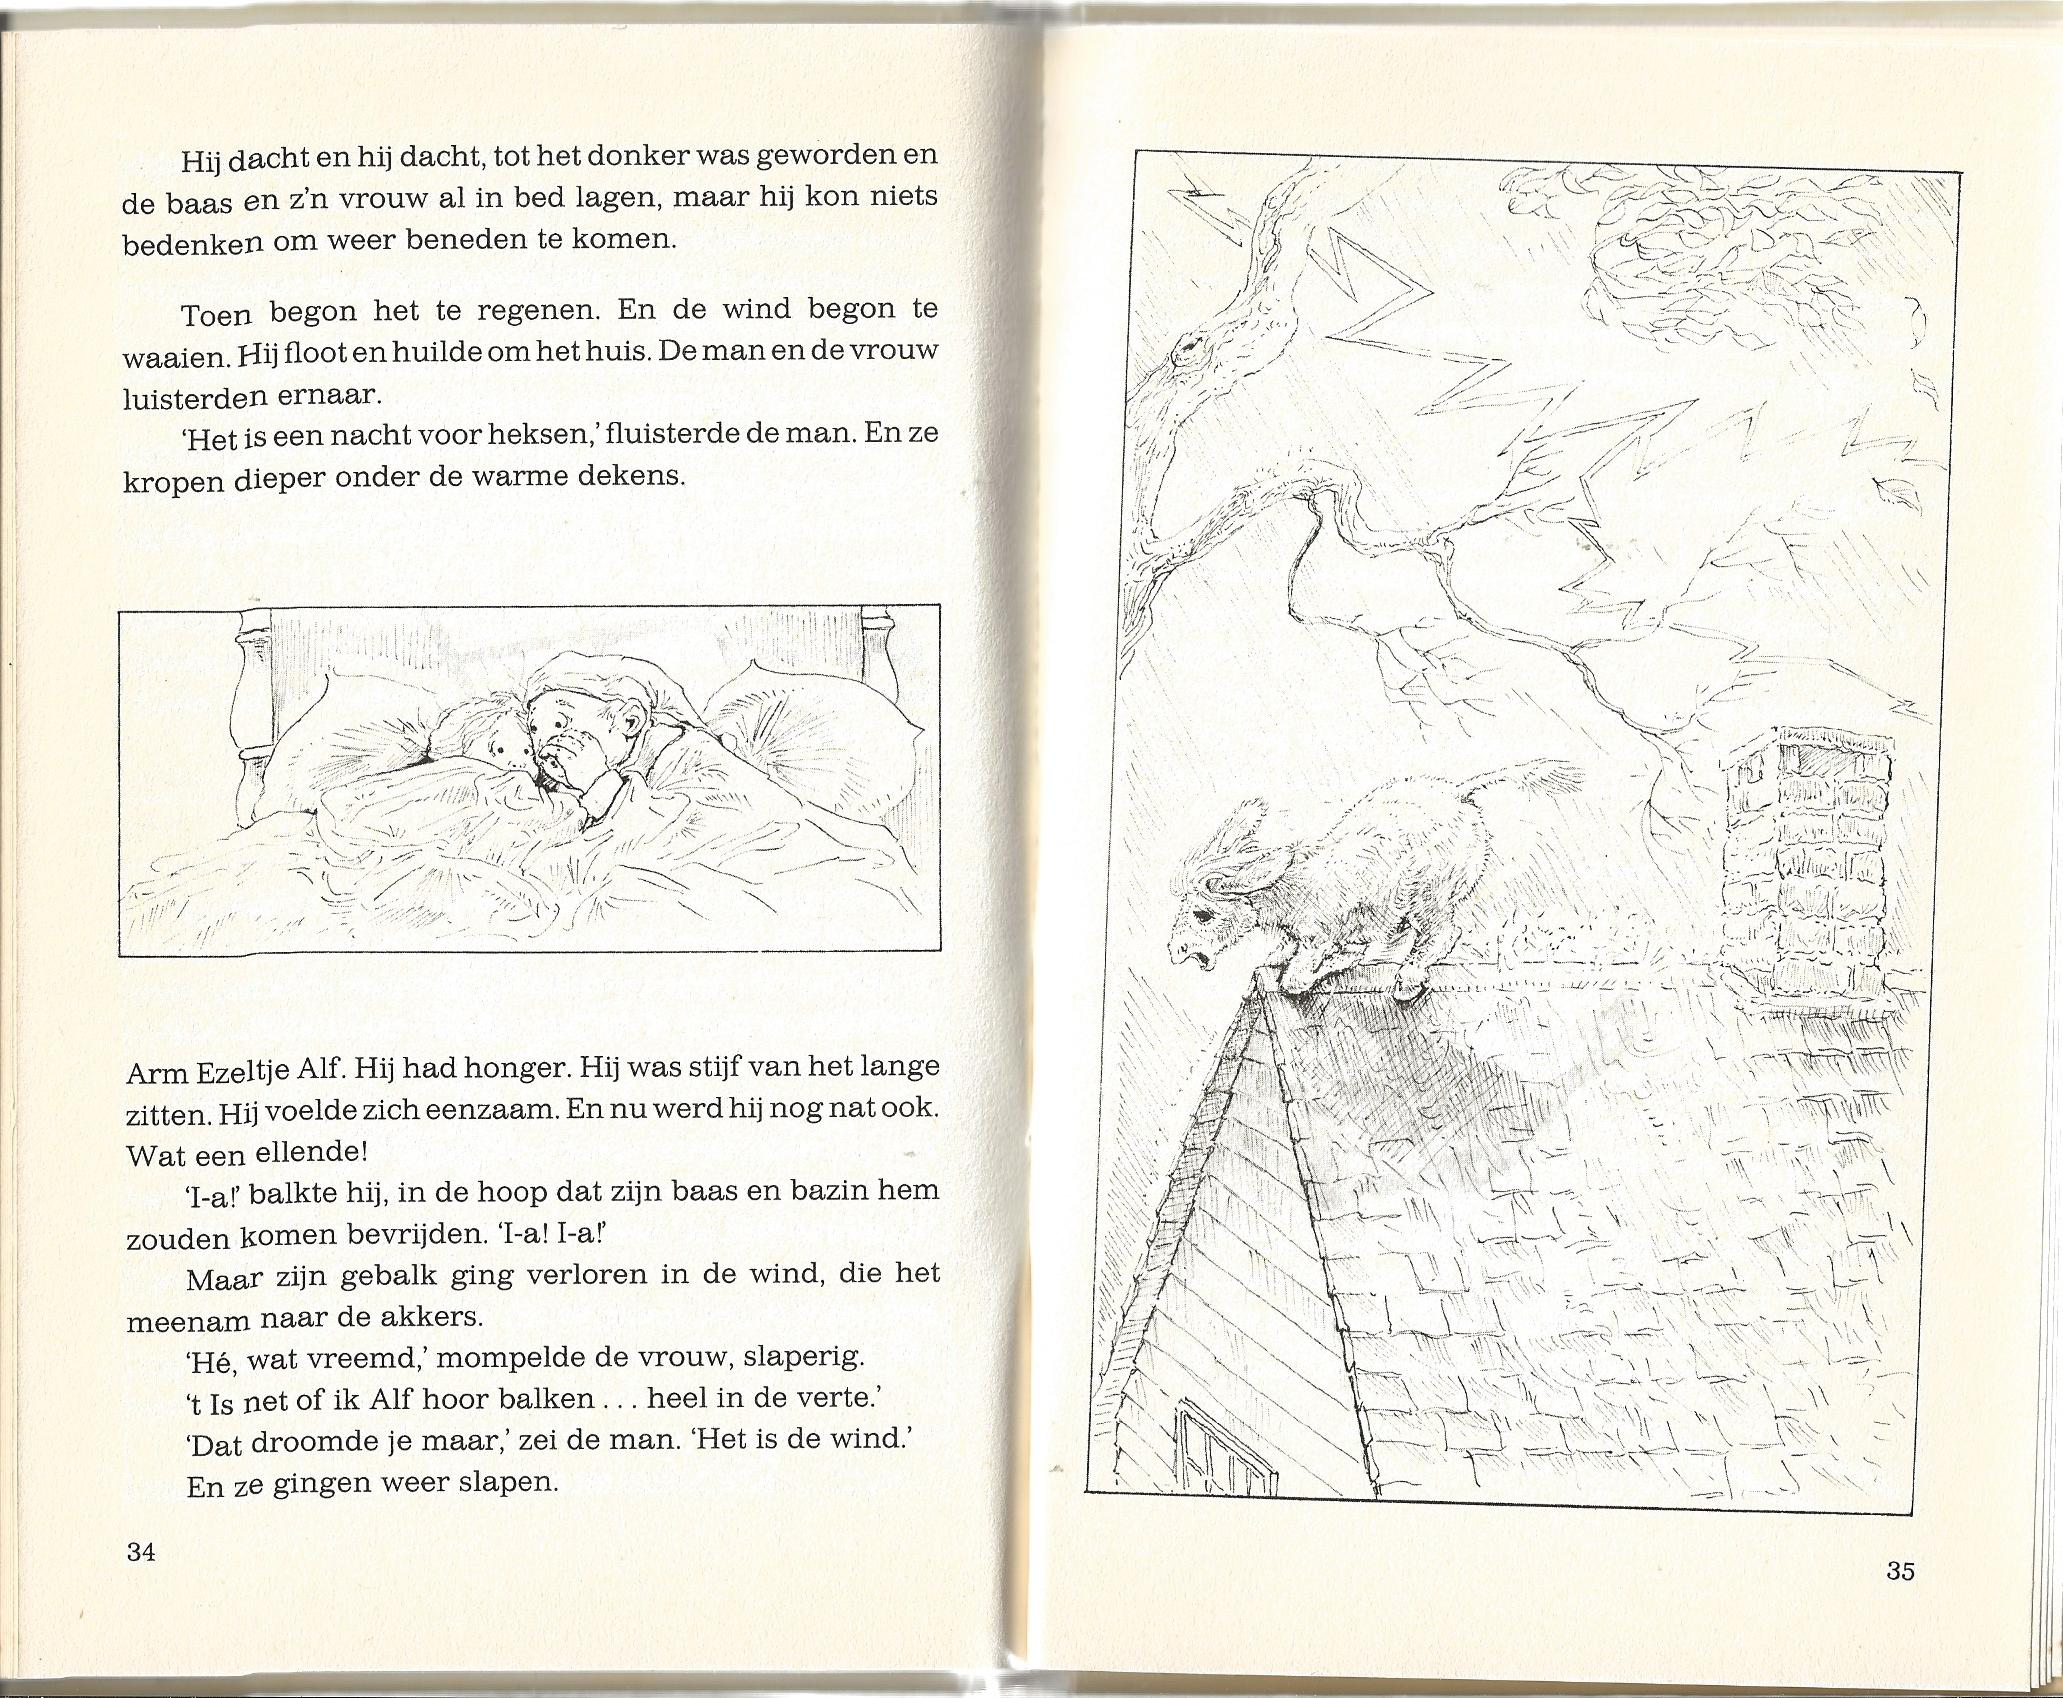 Hij dacht en hij dacht, tot het donker was geworden en
de baas en z'n vrouw al in bed lagen, maar hij kon niets
bedenken om weer beneden te komen.
Toen begon het te regenen. En de wind begon te
waaien. Hij floot en huilde om het huis. De man en de vrouw
luisterden ernaar.
‘Het is een nacht voor heksen,’ fluisterde de man. En ze
kropen dieper onder de warme dekens.
Arm Ezeltje Alf. Hij had honger. Hij was stijf van het lange
zitten. Hij voelde zich eenzaam. En nu werd hij nog nat ook.
Wat een ellende!
‘I-a!’ balkte hij, in de hoop dat zijn baas en bazin hem
zouden komen bevrijden. ‘I-a! I-a!’
Maar zijn gebalk ging verloren in de wind, die het
meenam naar de akkers.
‘Hé, wat vreemd,’ mompelde de vrouw, slaperig.
‘t Is net of ik Alf hoor balken . . . heel in de verte.’
‘Dat droomde je maar,’ zei de man. ‘Het is de wind.’
En ze gingen weer slapen.
34
35